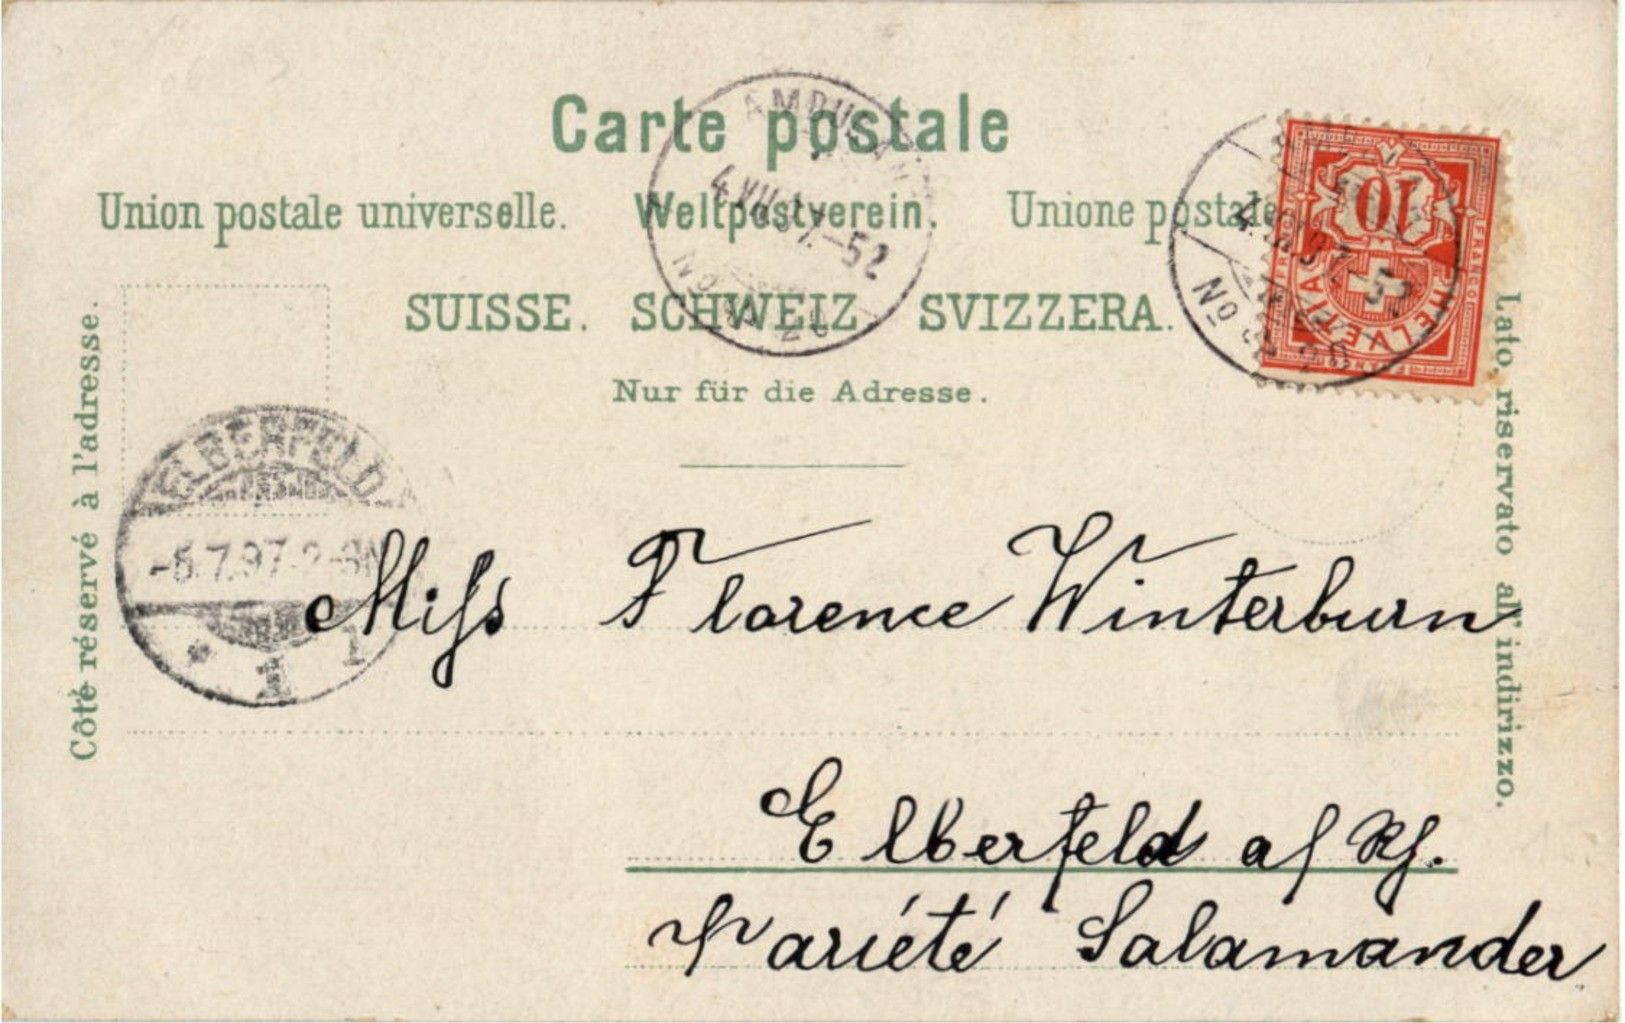 Carte postale
Union postale universelle. Weltpostverein. Unione postale
SUISSE. SCHWEIZ. SVIZZERA.
Nur für die Adresse.
Côté réservé à l'adresse.
Lato, riservato all' indirizzo.
AMBULANT
4.VII.97.-52
No
AMBULANT
4.VII.97.-52
No
10
FRANCO
HELVETIA
ELBERFELD
-5.7.97.2-3N
* 1 1
Miss Florence Winterburn
Elberfeld a/Rh.
Variété Salamander